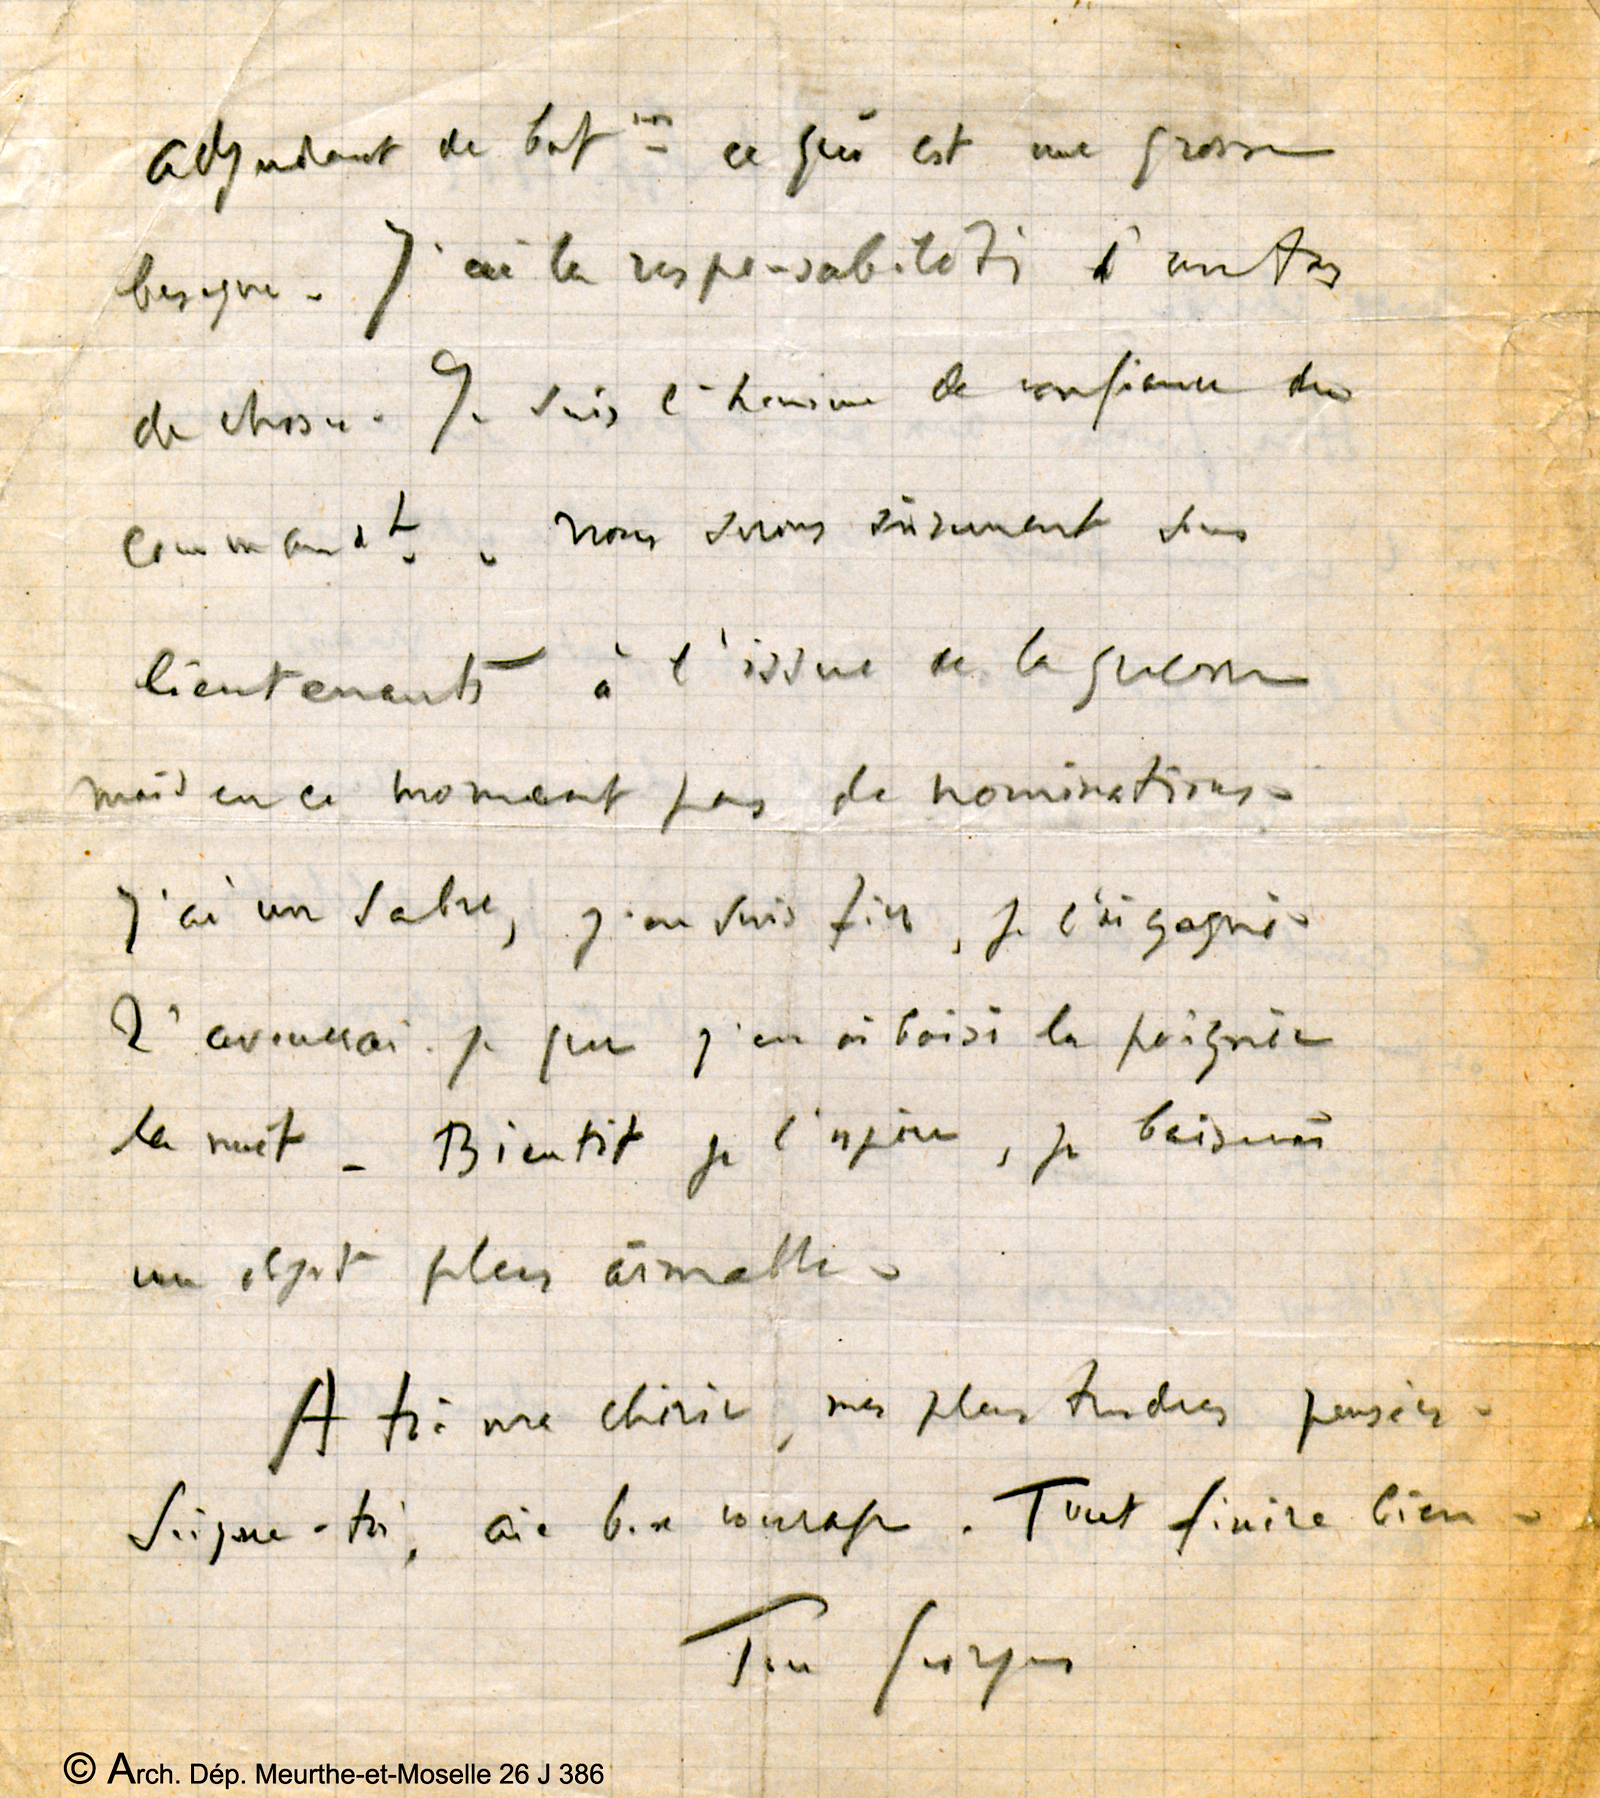 adjudant de bat^on - ce qui est une grosse
besogne. J'ai la responsabilité d'un tas
de choses. Je suis l'homme de confiance du
command^t. Nous serons sûrement sous
lieutenants à l'issue de la guerre
mais en ce moment pas de nominations.
J'ai un sabre, j'en suis fier, je l'ai gagné.
T'avouerai-je que j'en ai baisé la poignée
la nuit - Bientôt je l'espère, je baiserai
un objet plus aimable.
A toi ma chérie, mes plus tendres pensées.
Soigne-toi, aie bon courage. Tout finira bien.
Ton Georges
© Arch. Dép. Meurthe-et-Moselle 26 J 386